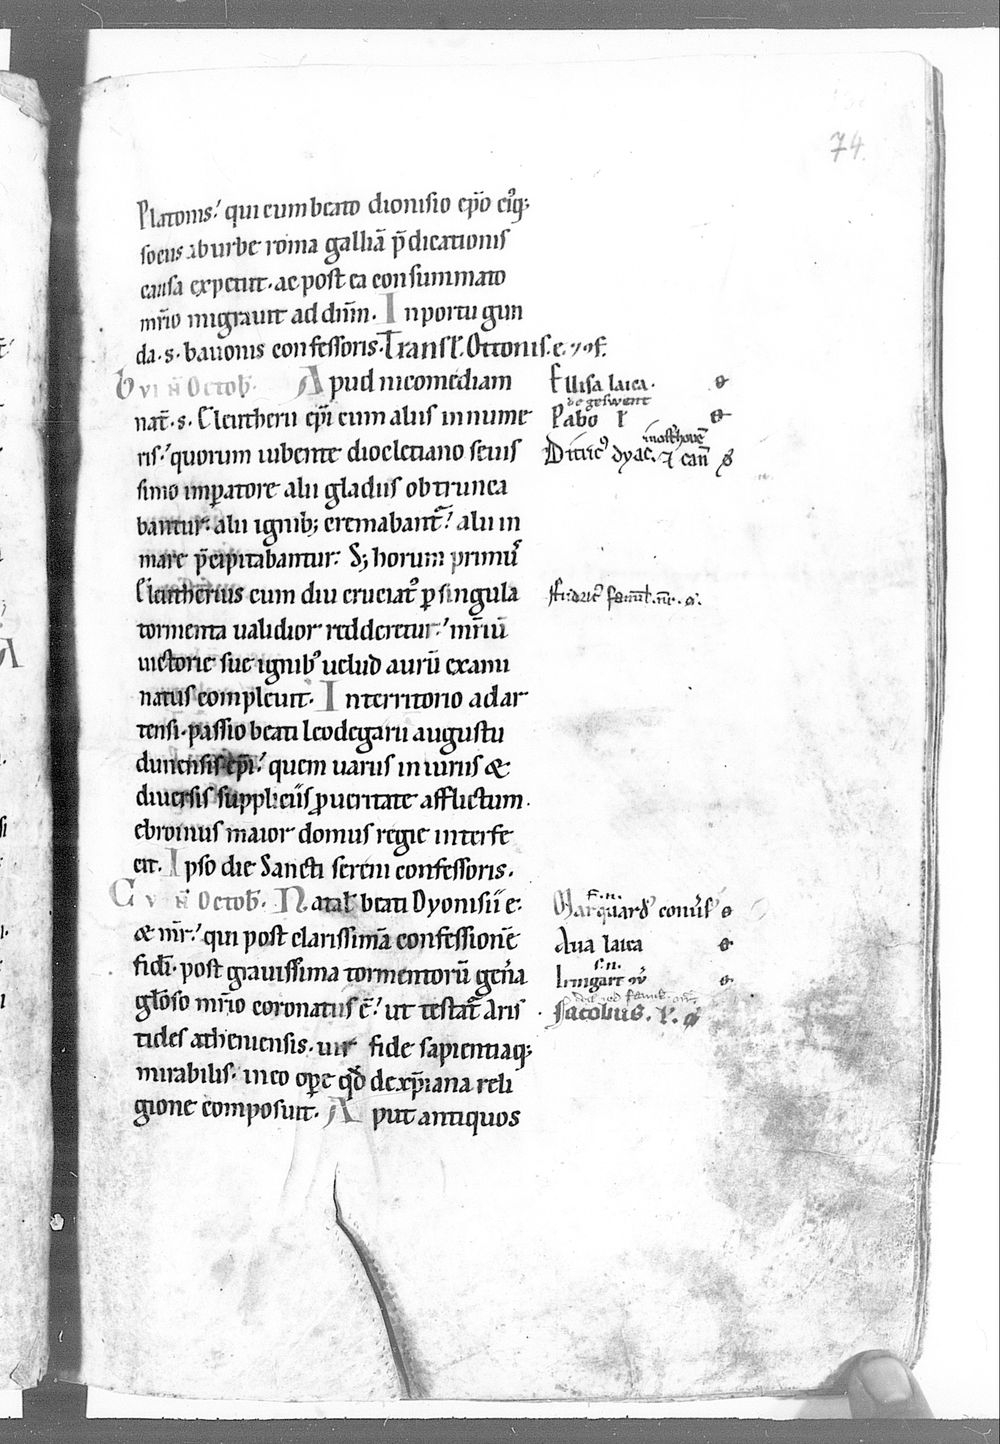 74.
Platonis. qui cum beato dionisio ep̄o eiꝰq;
sociis ab urbe roma galliā p̄dicationis
causa expetiit. ac post ea consummato
mr̄io migrauit ad dn̄m. In portu gan
da .s. bauonis confessoris. Transl. Ottonis. e. ⁊ ꝯf.
b vi N̄ Octob̄. Apud nicomediam
nat̄ .s. Eleutherii ep̄i cum aliis innume
ris. quorum iubente diocletiano seuis
simo imꝑatore alii gladiis obtrunca
bantur. alii ignib; cremabant̄. alii in
mare p̄cipitabantur. S; horum primuꝰ
Eleutherius cum diu cruciatꝰ ꝑ singula
tormenta ualidior redderetur. mr̄iū
uictorie sue ignibꝰ uelud aurū exami
natus compleuit. In territorio adar
tensi. passio beati leodegarii augustu
dunensis ep̄i. quem uariis iniuriis &
diuersis suppliciis ꝓ ueritate afflictum.
ebroinus maior domus regie interfe
cit. Ipso die Sancti sereni confessoris.
C v N̄ Octob̄. Natal̄ beati Dyonisii e.
& mr̄. qui post clarissimā confessionē
fidei. post grauissima tormentorū gen̄a
gl̄oso mr̄io coronatus ē. ut testat̄ Aris
tides atheniensis. uir fide sapientiaq;
mirabilis. in eo oꝑe qd̄ de xp̄iana reli
gione composuit. Aput antiquos
Ellisa laica.
de geswent
Pabo l
Ditricꝰ dyac. ⁊ can̄
Fridricꝰ
Marquardꝰ conūsꝰ
Aua laica
s.n.
Irmgart
Jacobus. l.